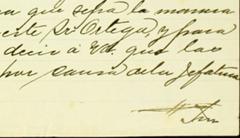 que sepa la manera
este Sr Ortega, y para
decir á Ud. que las
por causa dela Jefatura